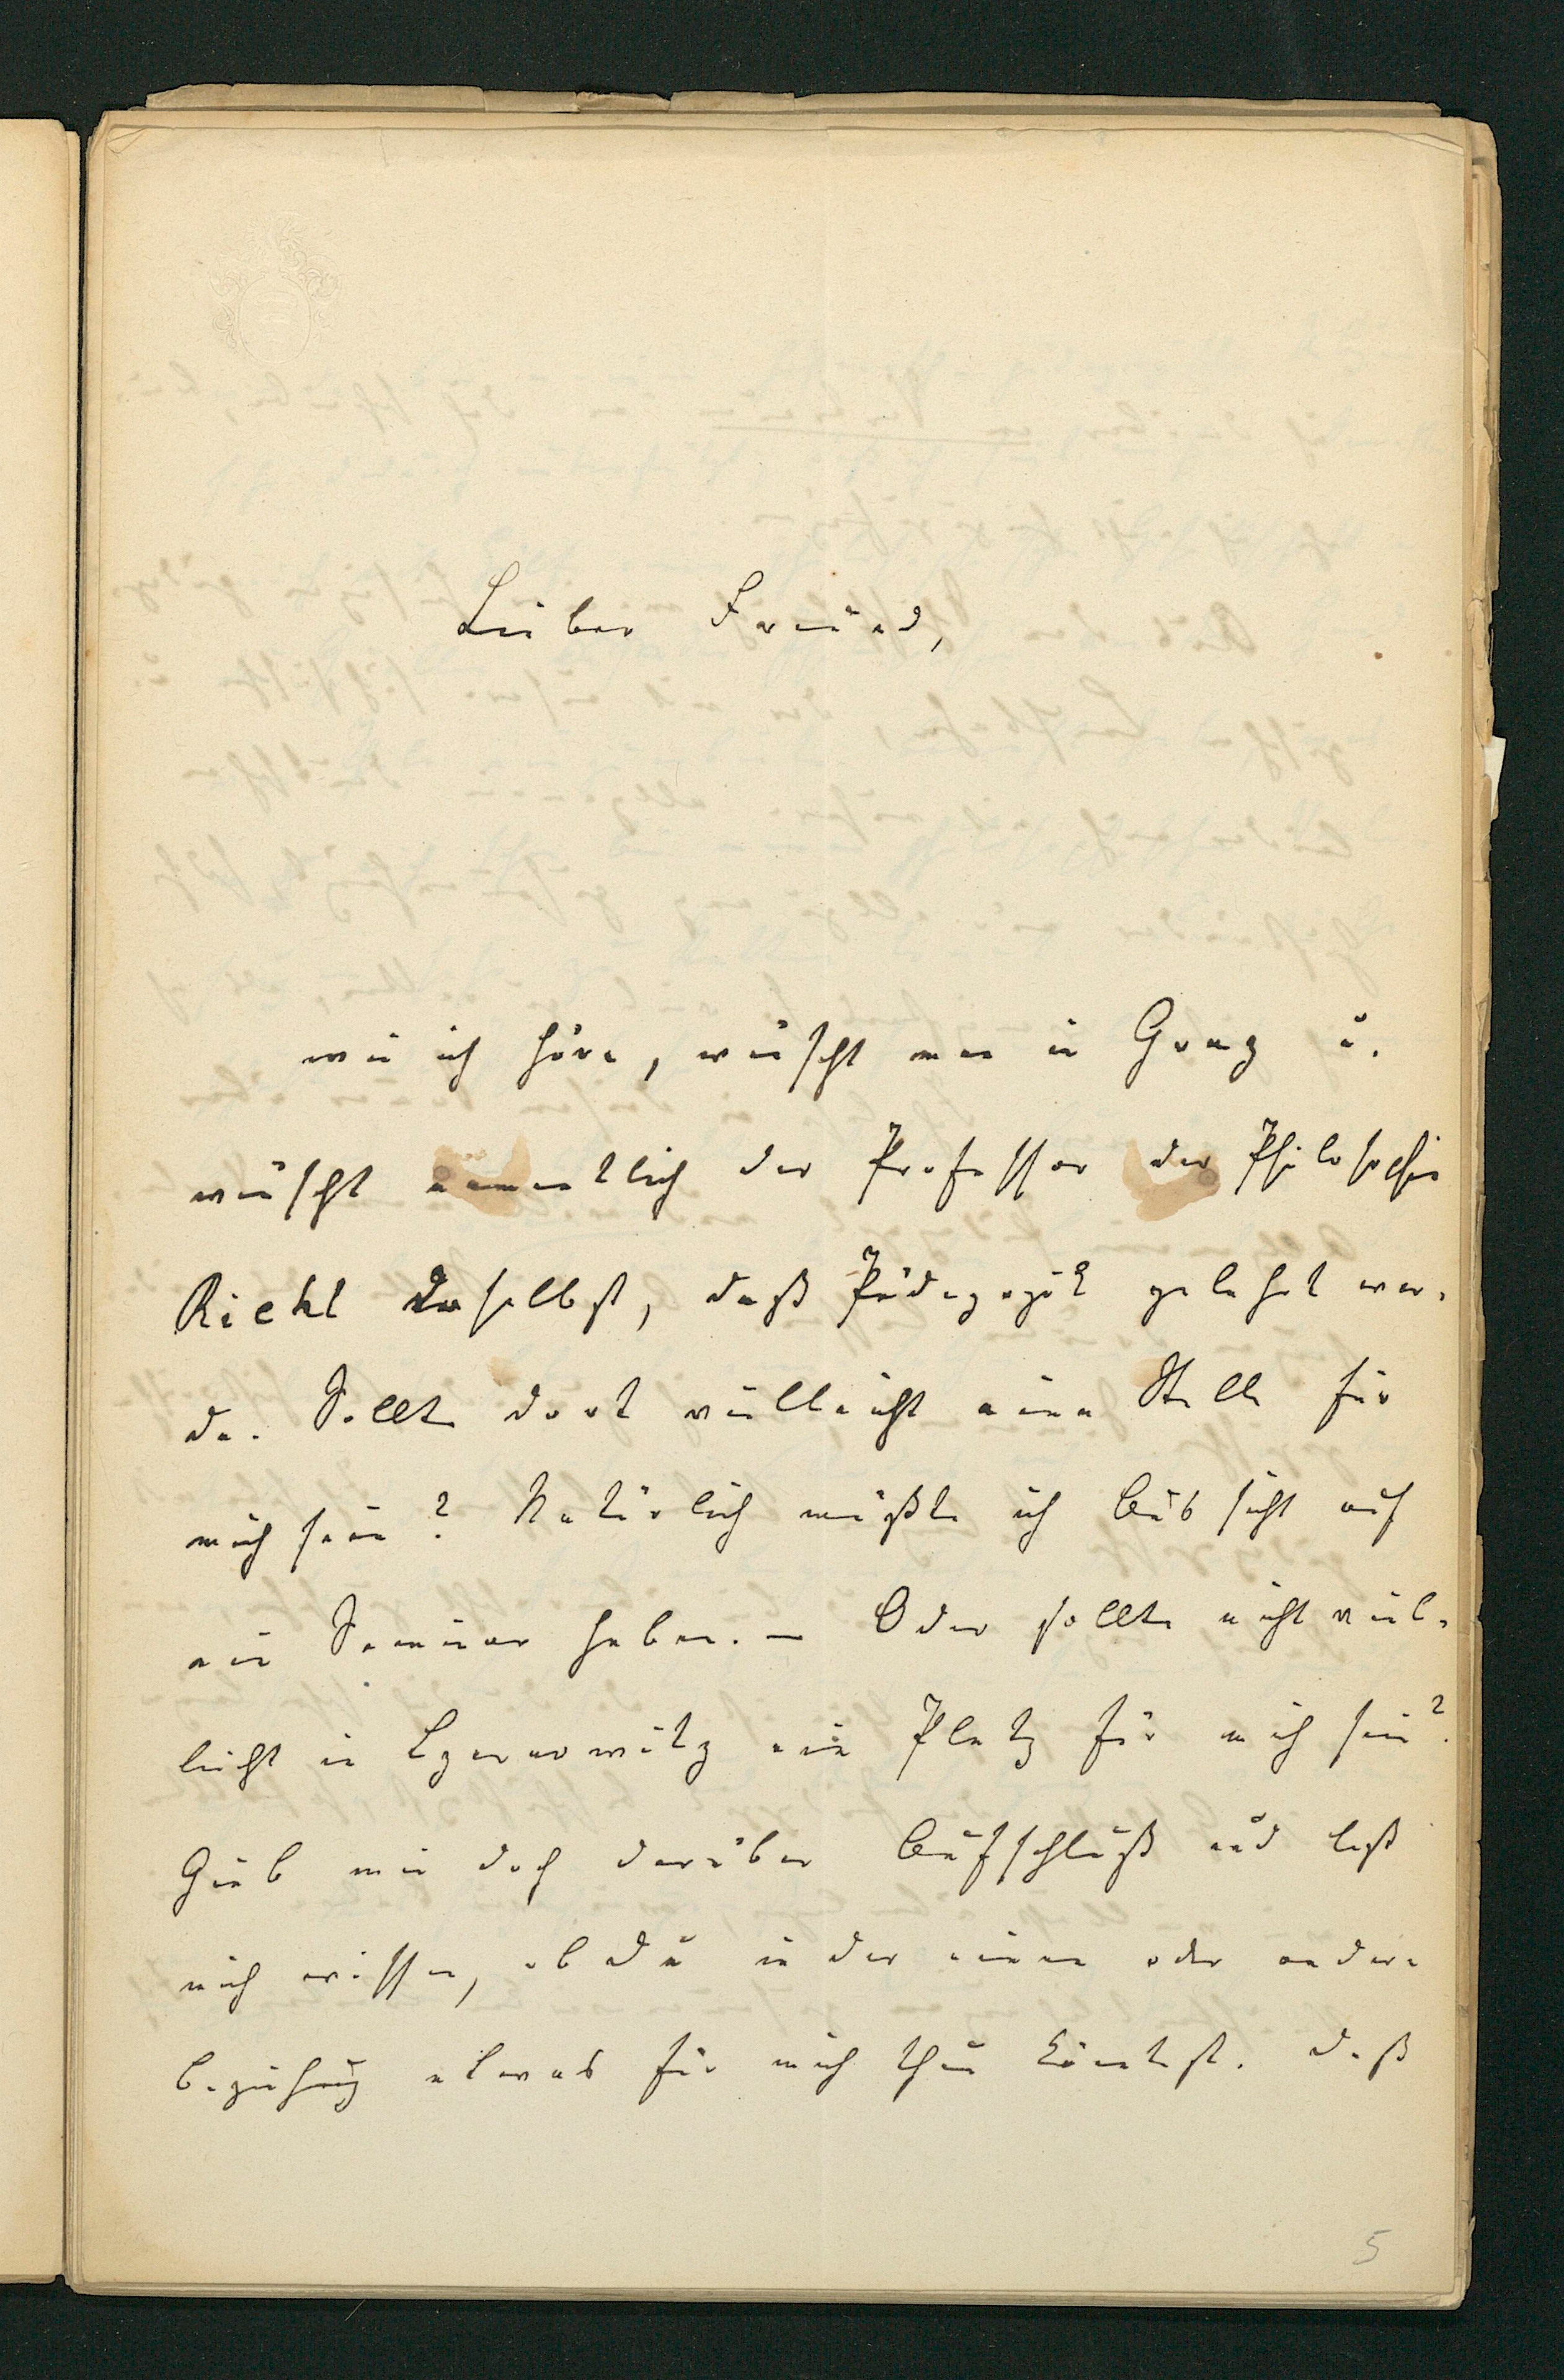 Lieber Freund,
wie ich höre, wünscht man in Graz u.
wünscht namentlich der Professor der Philosophie
Riehl daselbst, daß Pädagogik gelehrt wer-
de. Sollte dort vielleicht eine Stelle für
mich sein? Natürlich müßte ich Aussicht auf
ein Seminar haben. – Oder sollte nicht viel-
leicht in Czernowitz ein Platz für mich sein?
Gieb mir doch darüber Aufschluß und laß
mich wissen, ob Du in der einen oder andern
Beziehung etwas für mich thun könntest. Daß
5